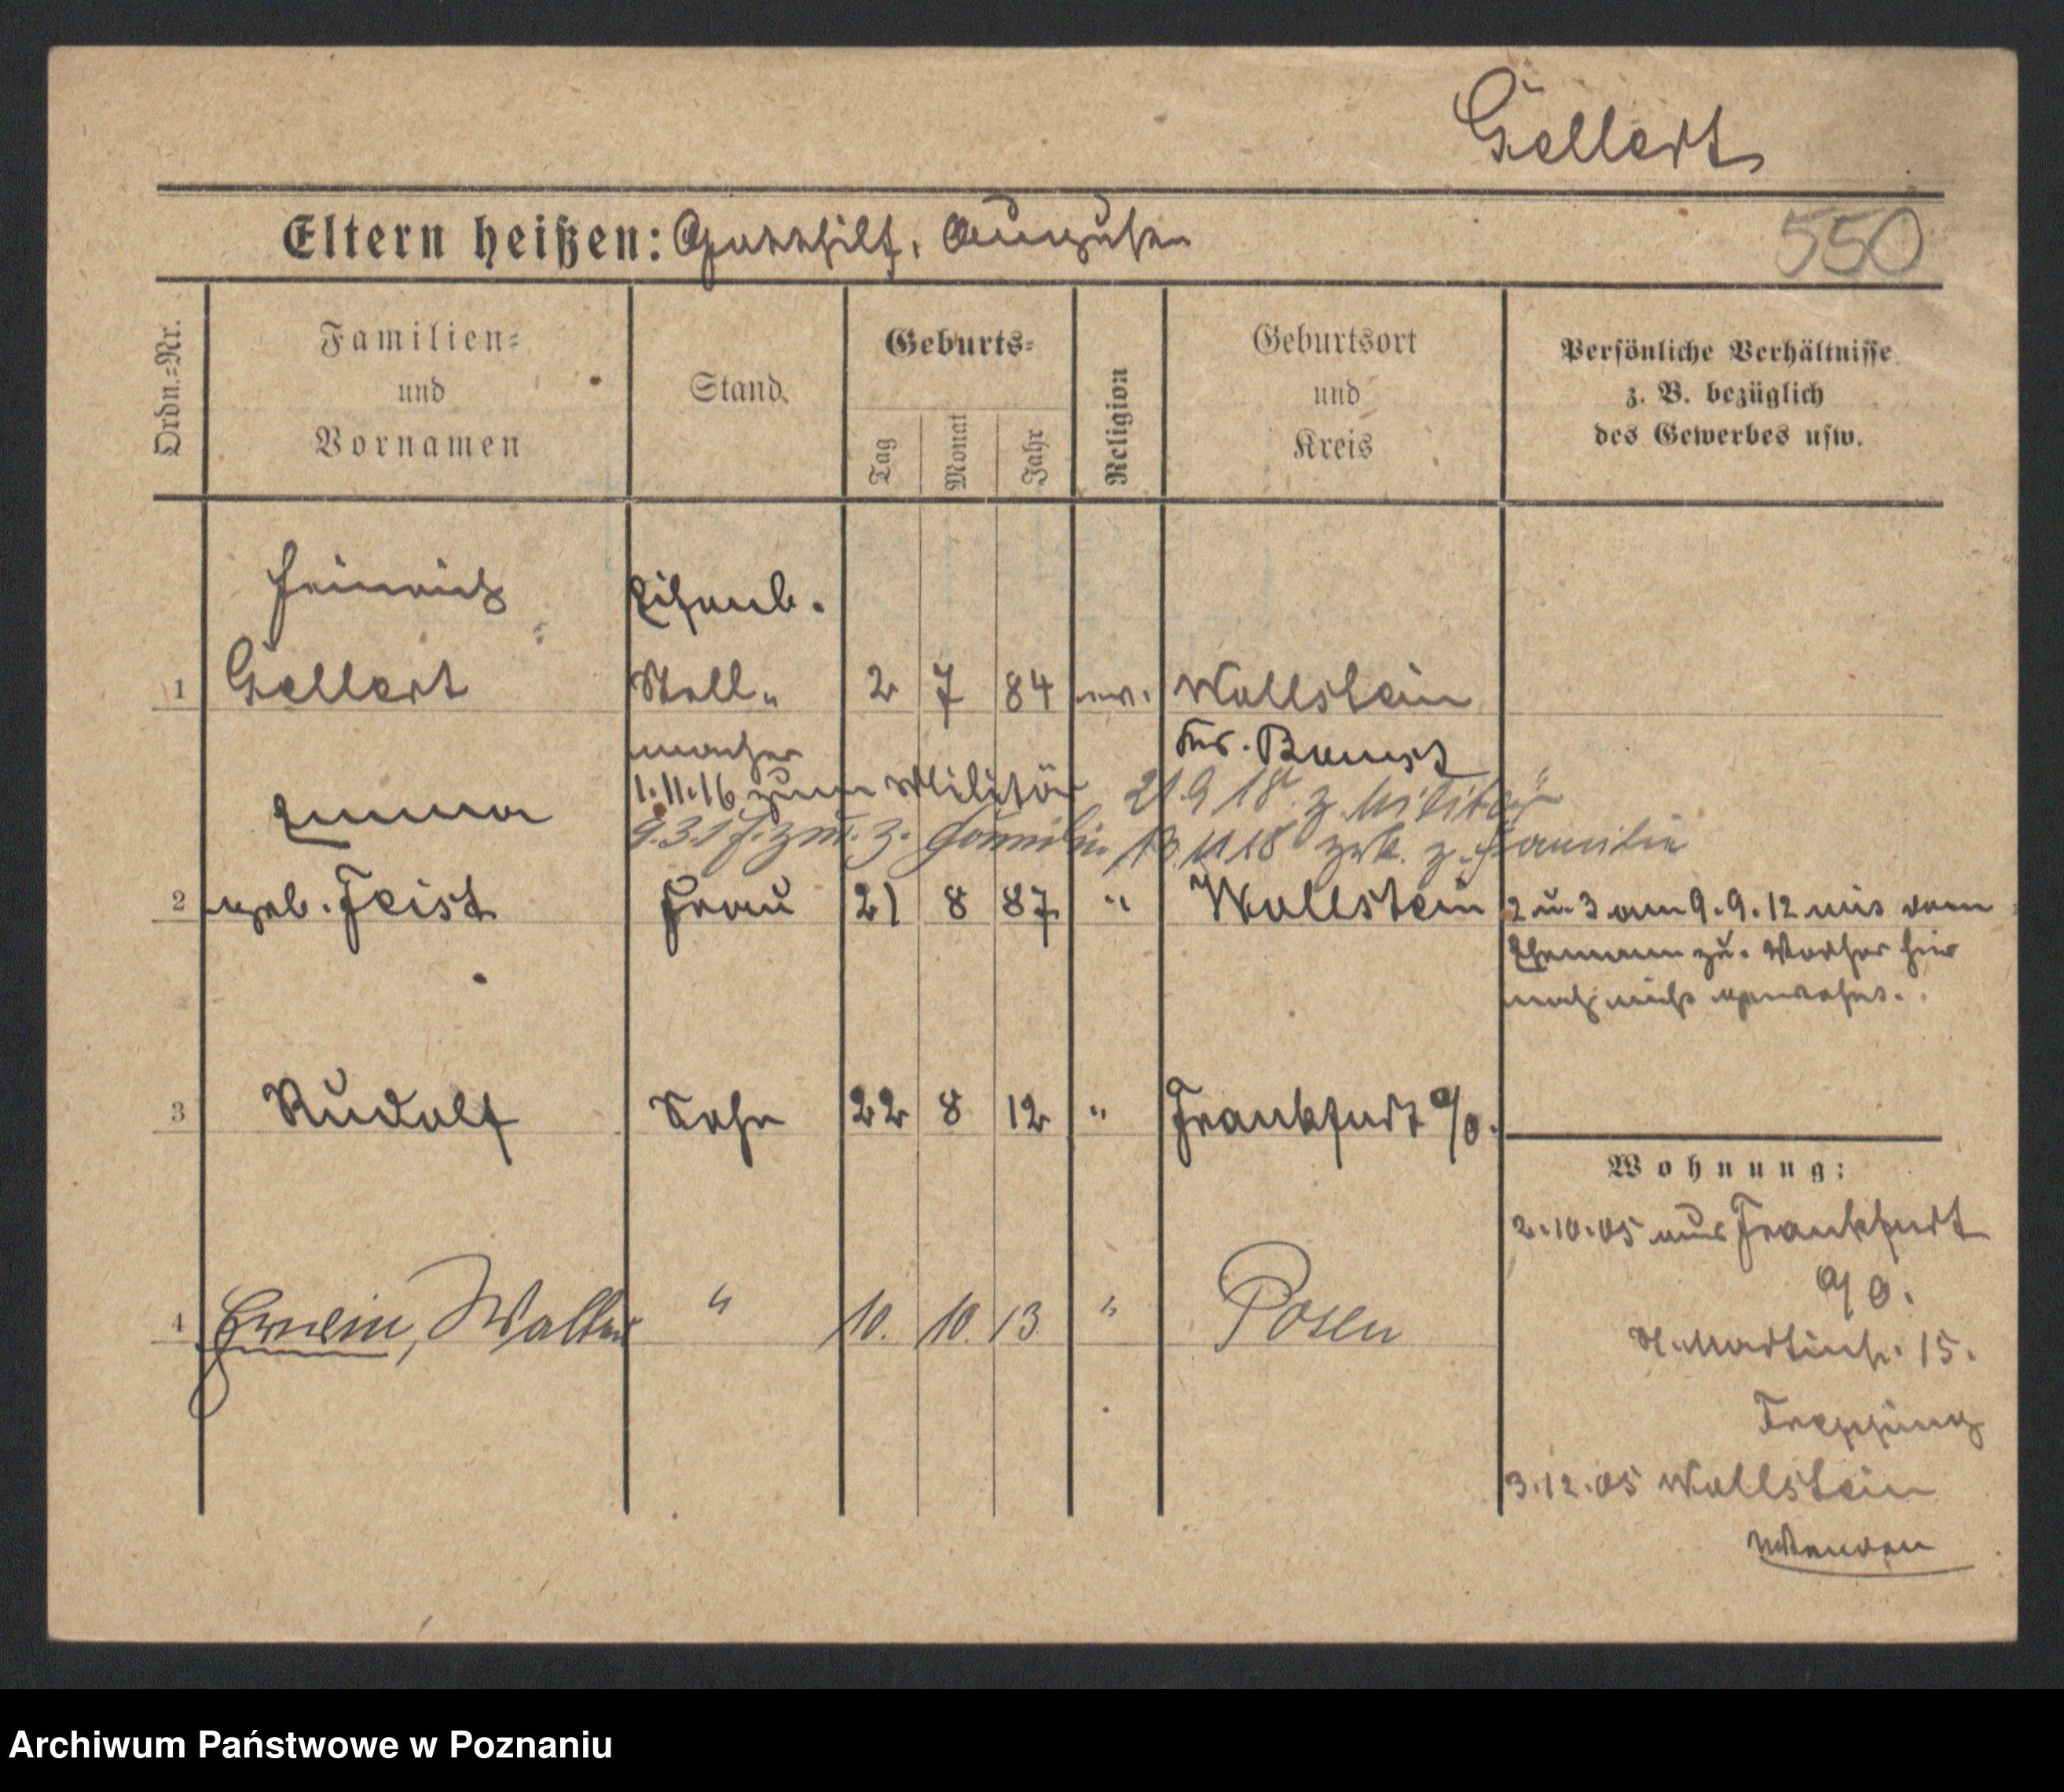 Gellert
Eltern heißen: Gotthilf, Auguste
550
Ordn.=Nr.
Familien=
und
Vornamen
Stand
Geburts=
Tag
Monat
Jahr
Religion
Geburtsort
und
Kreis
Persönliche Verhältnisse
z. B. bezüglich
des Gewerbes usw.
Heinrich Eisenb.
1 Gellert Stell„ 2 7 84 ev. Wollstein
macher Krs. Bomst
1.11.16 zum Militär 21 9 18 z. Militär
Emma 9.3.17 z. Familie 13.11 18 zrk. z. Familie
2 geb. Feist Frau 21 8 87 " Wollstein 2 u. 3 am 9.9.12 mit dem
Ehemann zu. Vorher hier
noch nicht gewohnt.
3 Rudolf Sohn 22 8 12 " Frankfurt a/O.
Wohnung:
2.10.05 aus Frankfurt
a/O.
4 Erwein, Walter " 10. 10. 13 " Posen
St. Martinstr. 15.
3.12.05 Wollstein
Wenden
Archiwum Państwowe w Poznaniu